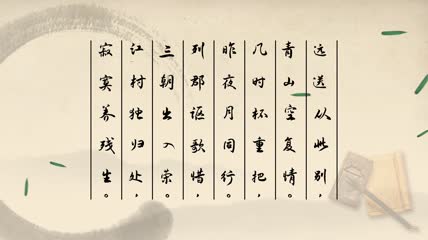 远送从此别，
青山空复情。
几时杯重把，
昨夜月同行。
列郡讴歌惜，
三朝出入荣。
江村独归处，
寂寞养残生。